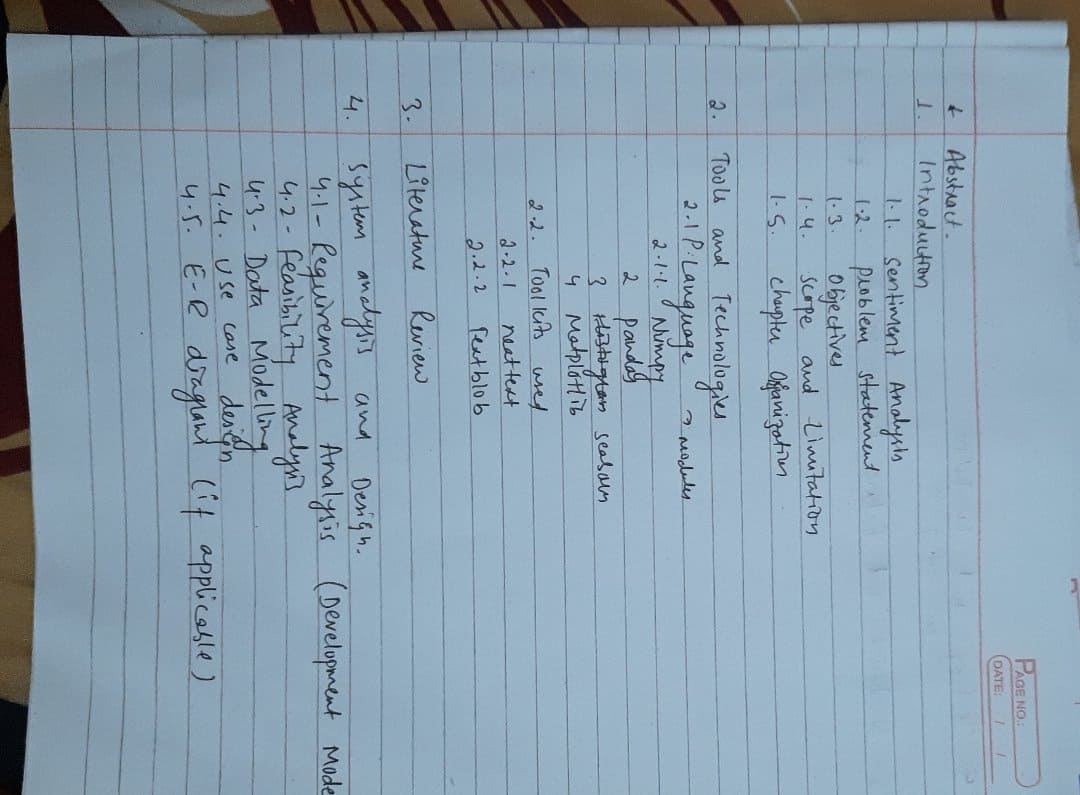 PAGE NO.:
DATE: / /
* Abstract.
1. Introduction
1.1. Sentiment Analysis
1.2. problem statement
1.3. Objectives
1.4. Scope and Limitation
1.5. chapter Organization
2. Tools and Technologies
2.1 P. Language → modules
2.1.1. Numpy
2 pandas
3 Histogram seaborn
4 Matplotlib
2.2. Tool kits used
2.2.1 neattext
2.2.2 Textblob
3. Literature Review
4. System analysis and Design.
4.1 - Requirement Analysis (Development Mode
4.2 - Feasibility Analysis
4.3 - Data Modelling
4.4. Use case design
4.5. E-R diagram (if applicable)